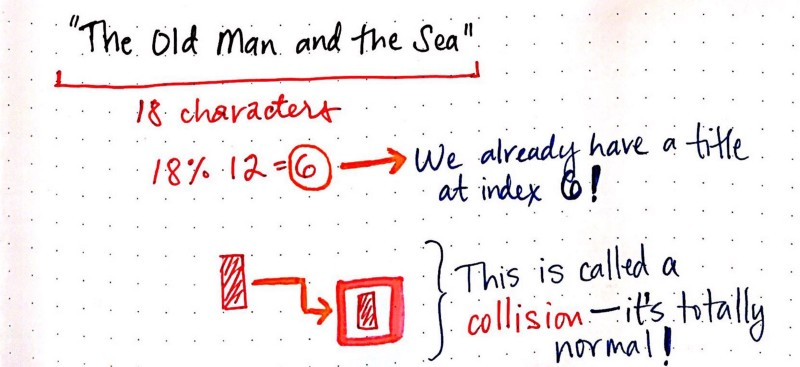 "The Old Man and the Sea"
18 characters
18% 12 = 6 We already have a title
at index 6!
This is called a
collision – it's totally
normal!